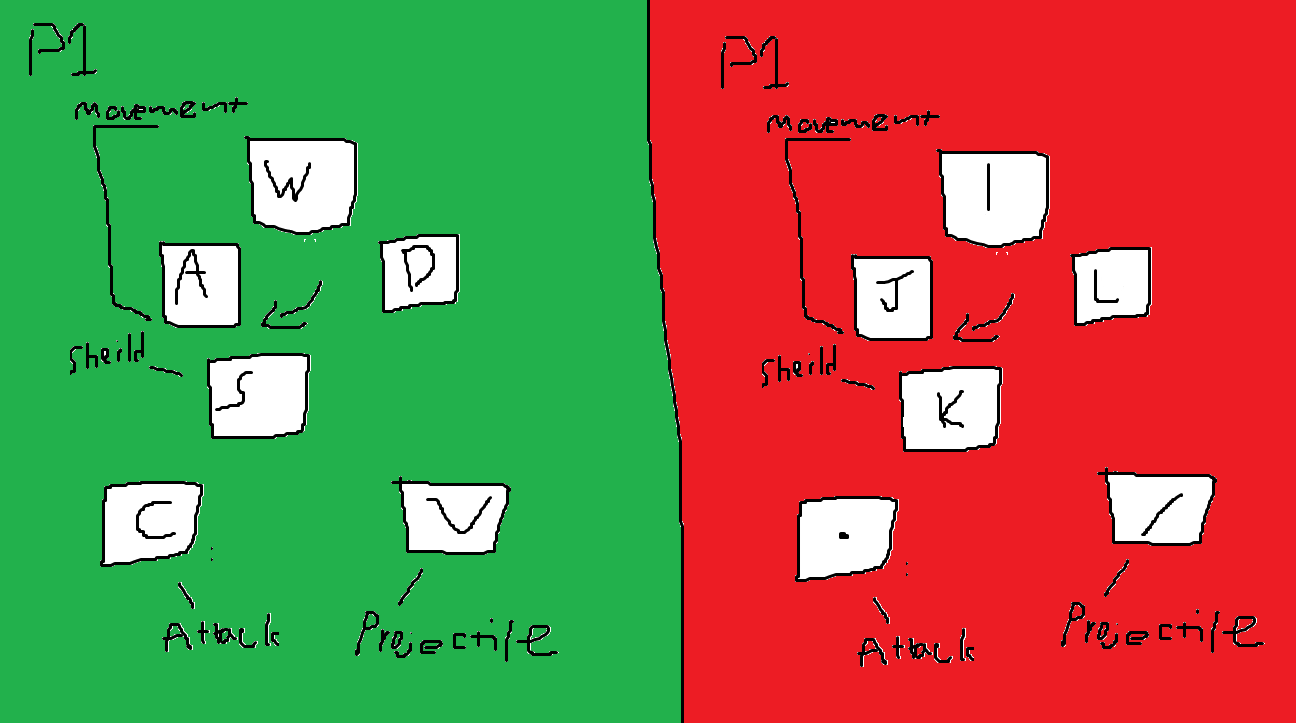 P1
movement
W
A
D
Sheild
S
C
V
Attack
Projectile
P1
movement
I
J
L
Sheild
K
.
/
Attack
Projectile